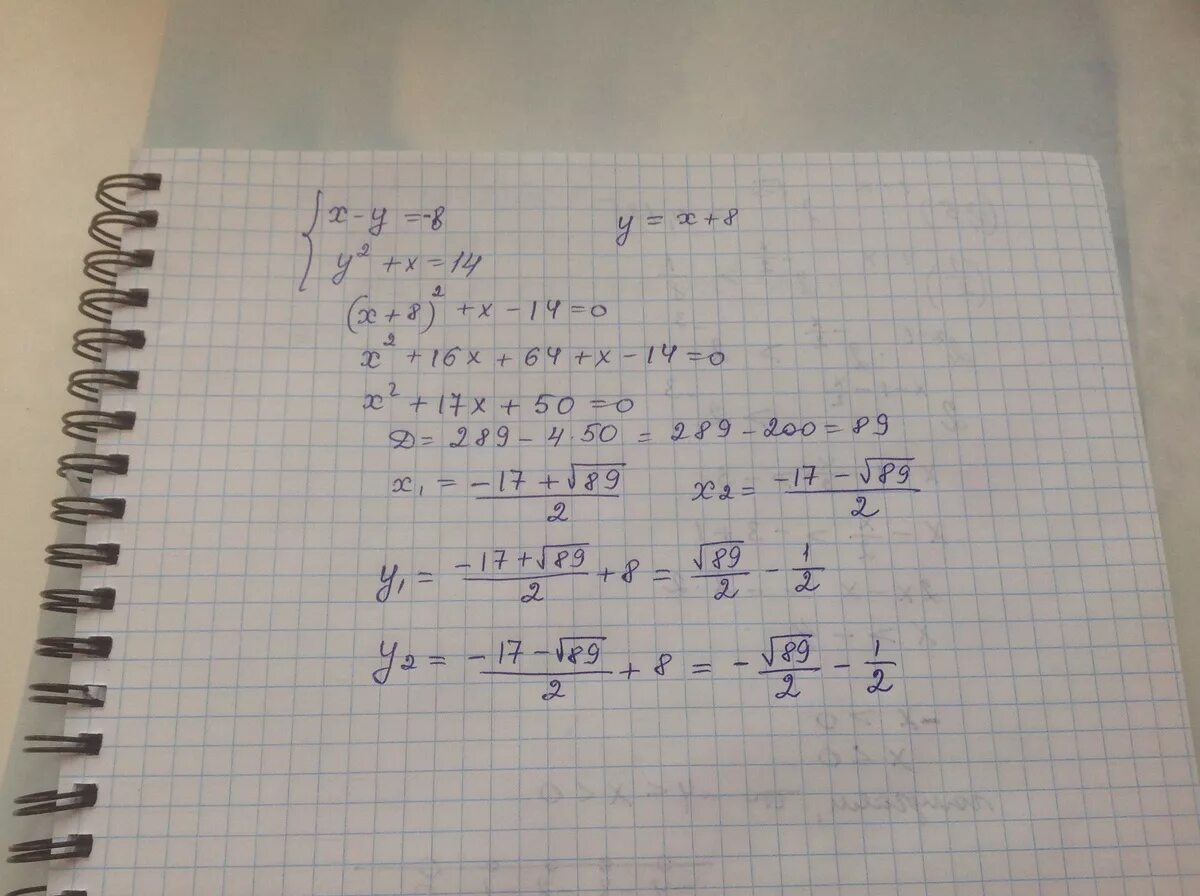 x - y = -8 y = x + 8
y² + x = 14
(x + 8)² + x - 14 = 0
x² + 16x + 64 + x - 14 = 0
x² + 17x + 50 = 0
D = 289 - 4·50 = 289 - 200 = 89
x₁ = (-17 + √89)/2 x₂ = (-17 - √89)/2
y₁ = (-17 + √89)/2 + 8 = √89/2 - 1/2
y₂ = (-17 - √89)/2 + 8 = -√89/2 - 1/2